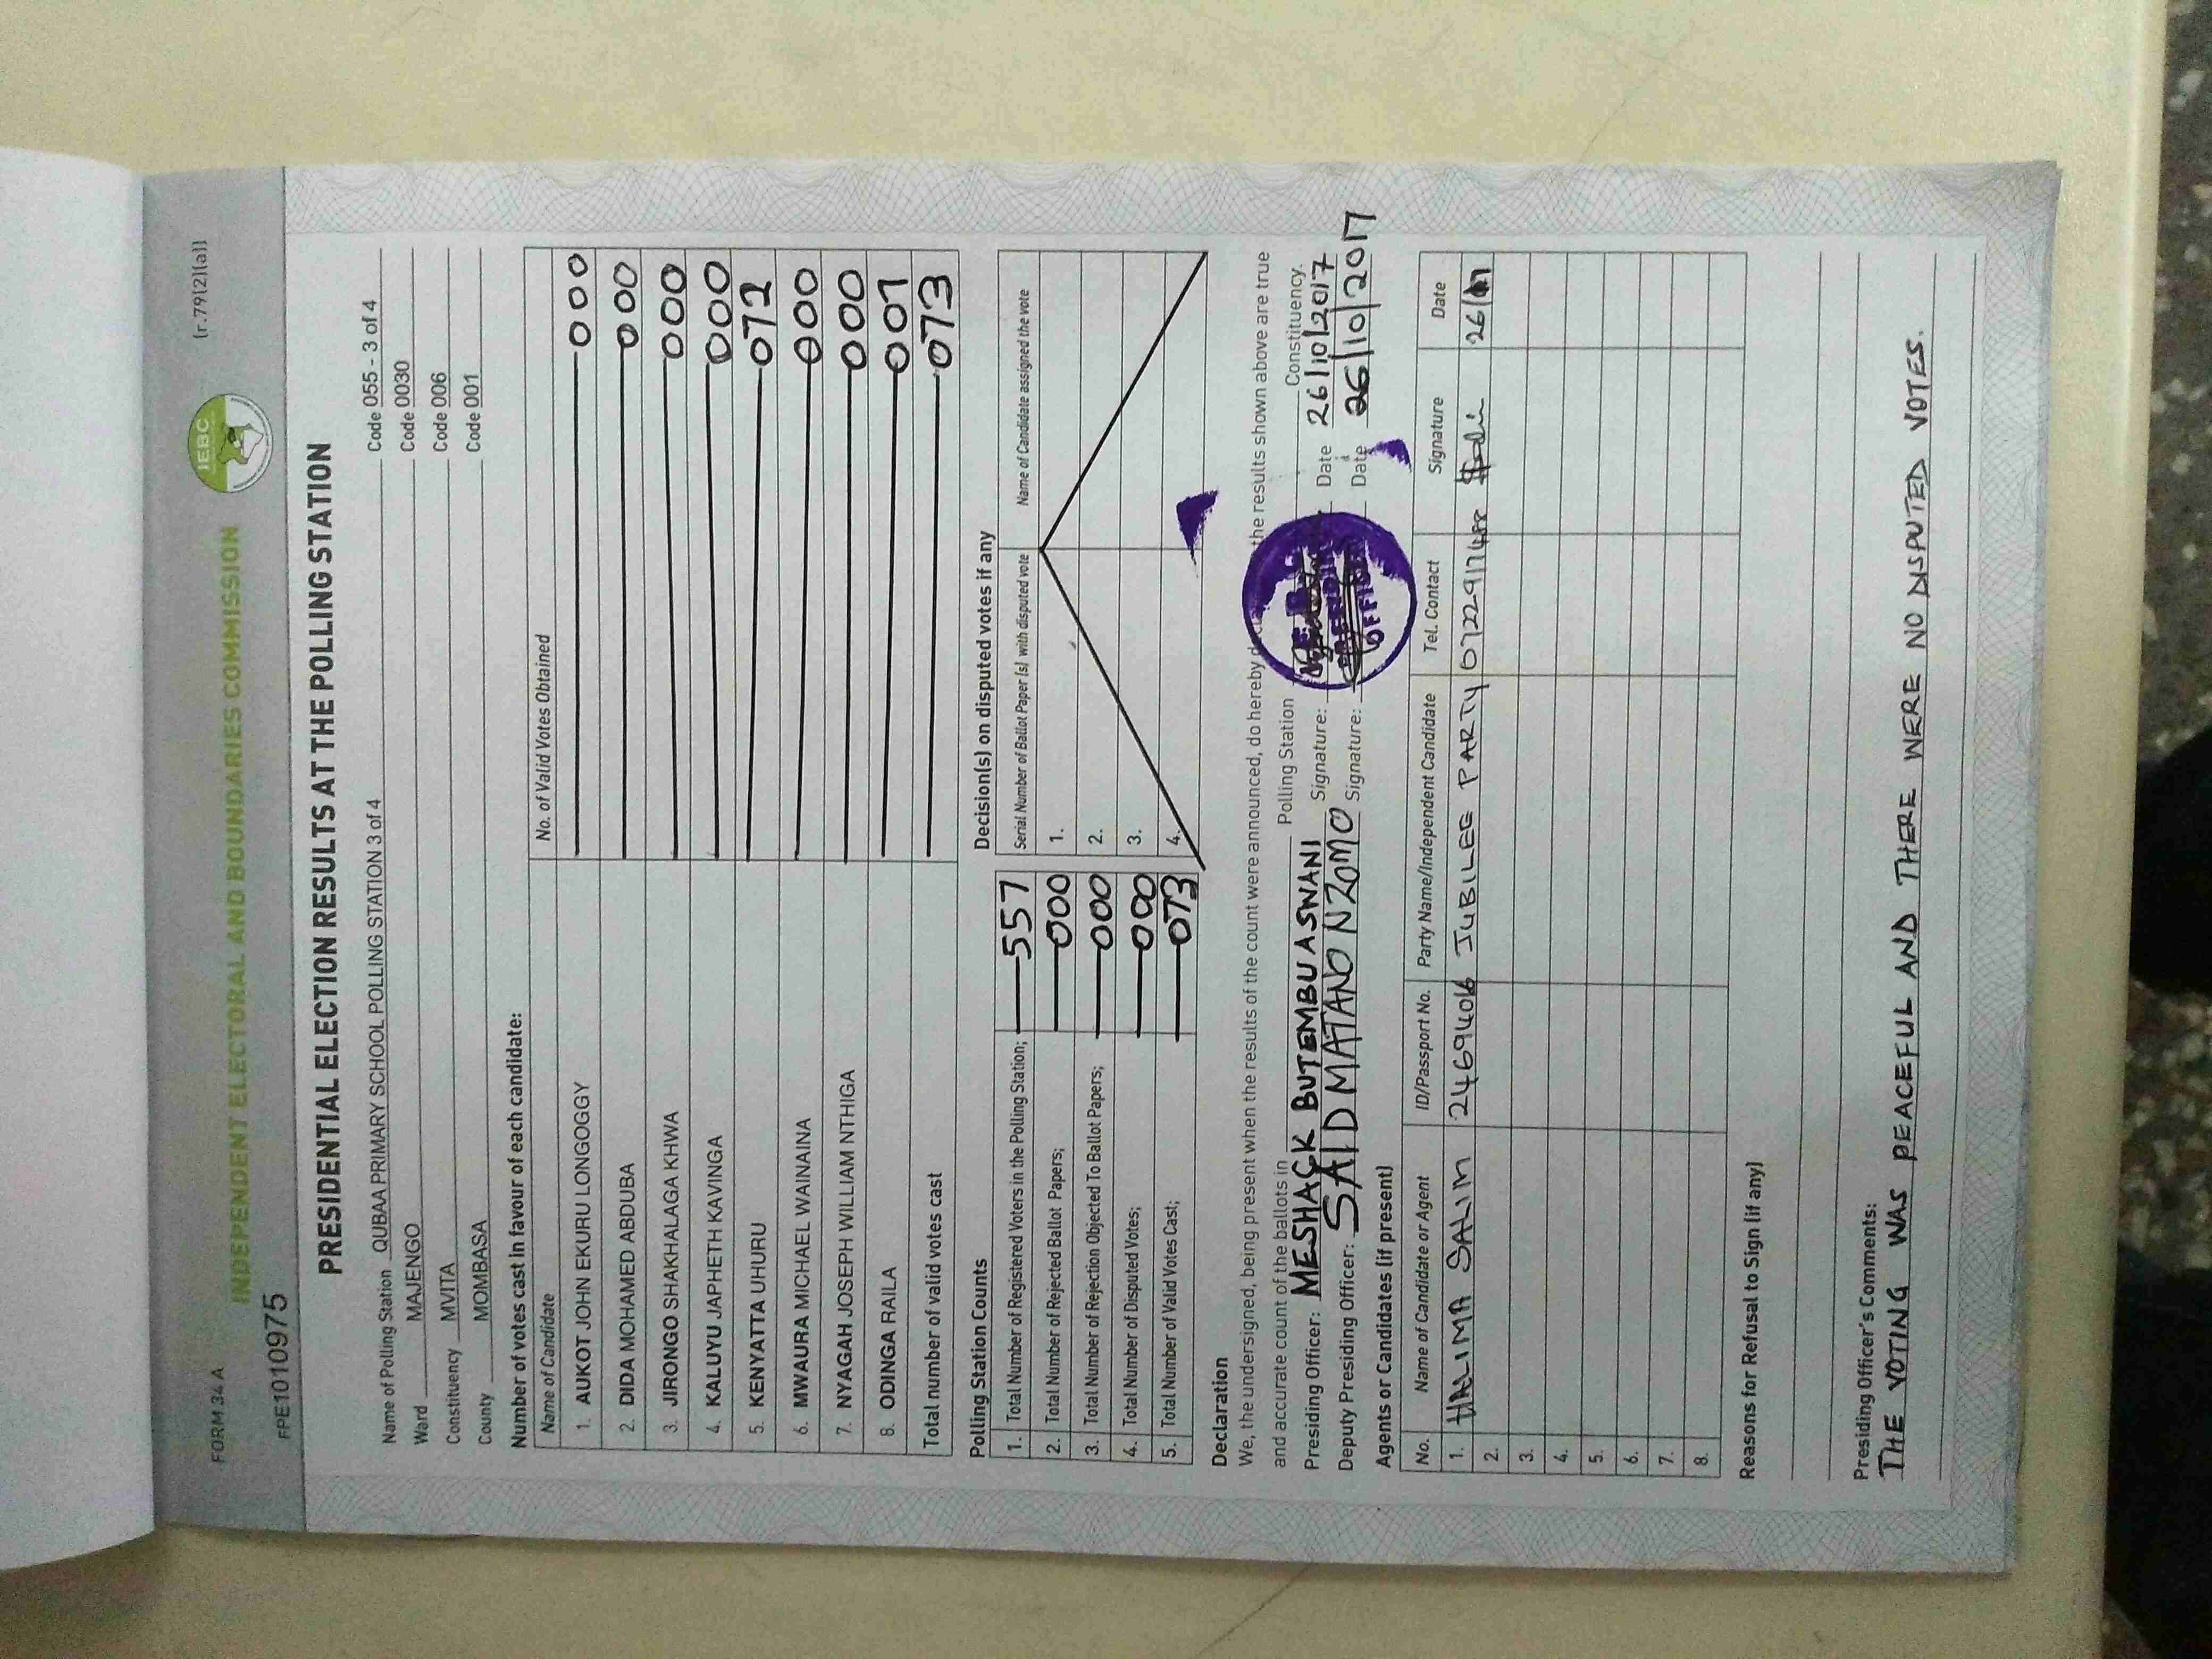 FORM 34 A
(r.79(2)(a))
INDEPENDENT ELECTORAL AND BOUNDARIES COMMISSION
IEBC
FPE1010975
PRESIDENTIAL ELECTION RESULTS AT THE POLLING STATION
Name of Polling Station QUBAA PRIMARY SCHOOL POLLING STATION 3 of 4 Code 055 - 3 of 4
Ward MAJENGO Code 0030
Constituency MVITA Code 006
County MOMBASA Code 001
Number of votes cast in favour of each candidate:
Name of Candidate No. of Valid Votes Obtained
1. AUKOT JOHN EKURU LONGOGGY 000
2. DIDA MOHAMED ABDUBA 000
3. JIRONGO SHAKHALAGA KHWA 000
4. KALUYU JAPHETH KAVINGA 000
5. KENYATTA UHURU 072
6. MWAURA MICHAEL WAINAINA 000
7. NYAGAH JOSEPH WILLIAM NTHIGA 000
8. ODINGA RAILA 001
Total number of valid votes cast 073
Polling Station Counts
1. Total Number of Registered Voters in the Polling Station; 557
2. Total Number of Rejected Ballot Papers; 000
3. Total Number of Rejection Objected To Ballot Papers; 000
4. Total Number of Disputed Votes; 000
5. Total Number of Valid Votes Cast; 073
Decision(s) on disputed votes if any
Serial Number of Ballot Paper (s) with disputed vote Name of Candidate assigned the vote
1.
2.
3.
4.
Declaration
We, the undersigned, being present when the results of the count were announced, do hereby the results shown above are true
and accurate count of the ballots in Polling Station Constituency.
Presiding Officer: MESHACK BUTEMBU ASWANI Signature: Date 26/10/2017
Deputy Presiding Officer: SAID MATANO NZOMO Signature: Date 26/10/2017
OFFICER
Agents or Candidates (if present)
No. Name of Candidate or Agent ID/Passport No. Party Name/Independent Candidate Tel. Contact Signature Date
1. HALIMA SALIM 24694016 JUBILEE PARTY
2.
3.
4.
5.
6.
7.
8.
Reasons for Refusal to Sign (if any)
Presiding Officer's Comments:
THE VOTING WAS PEACEFUL AND THERE WERE NO DISPUTED VOTES.